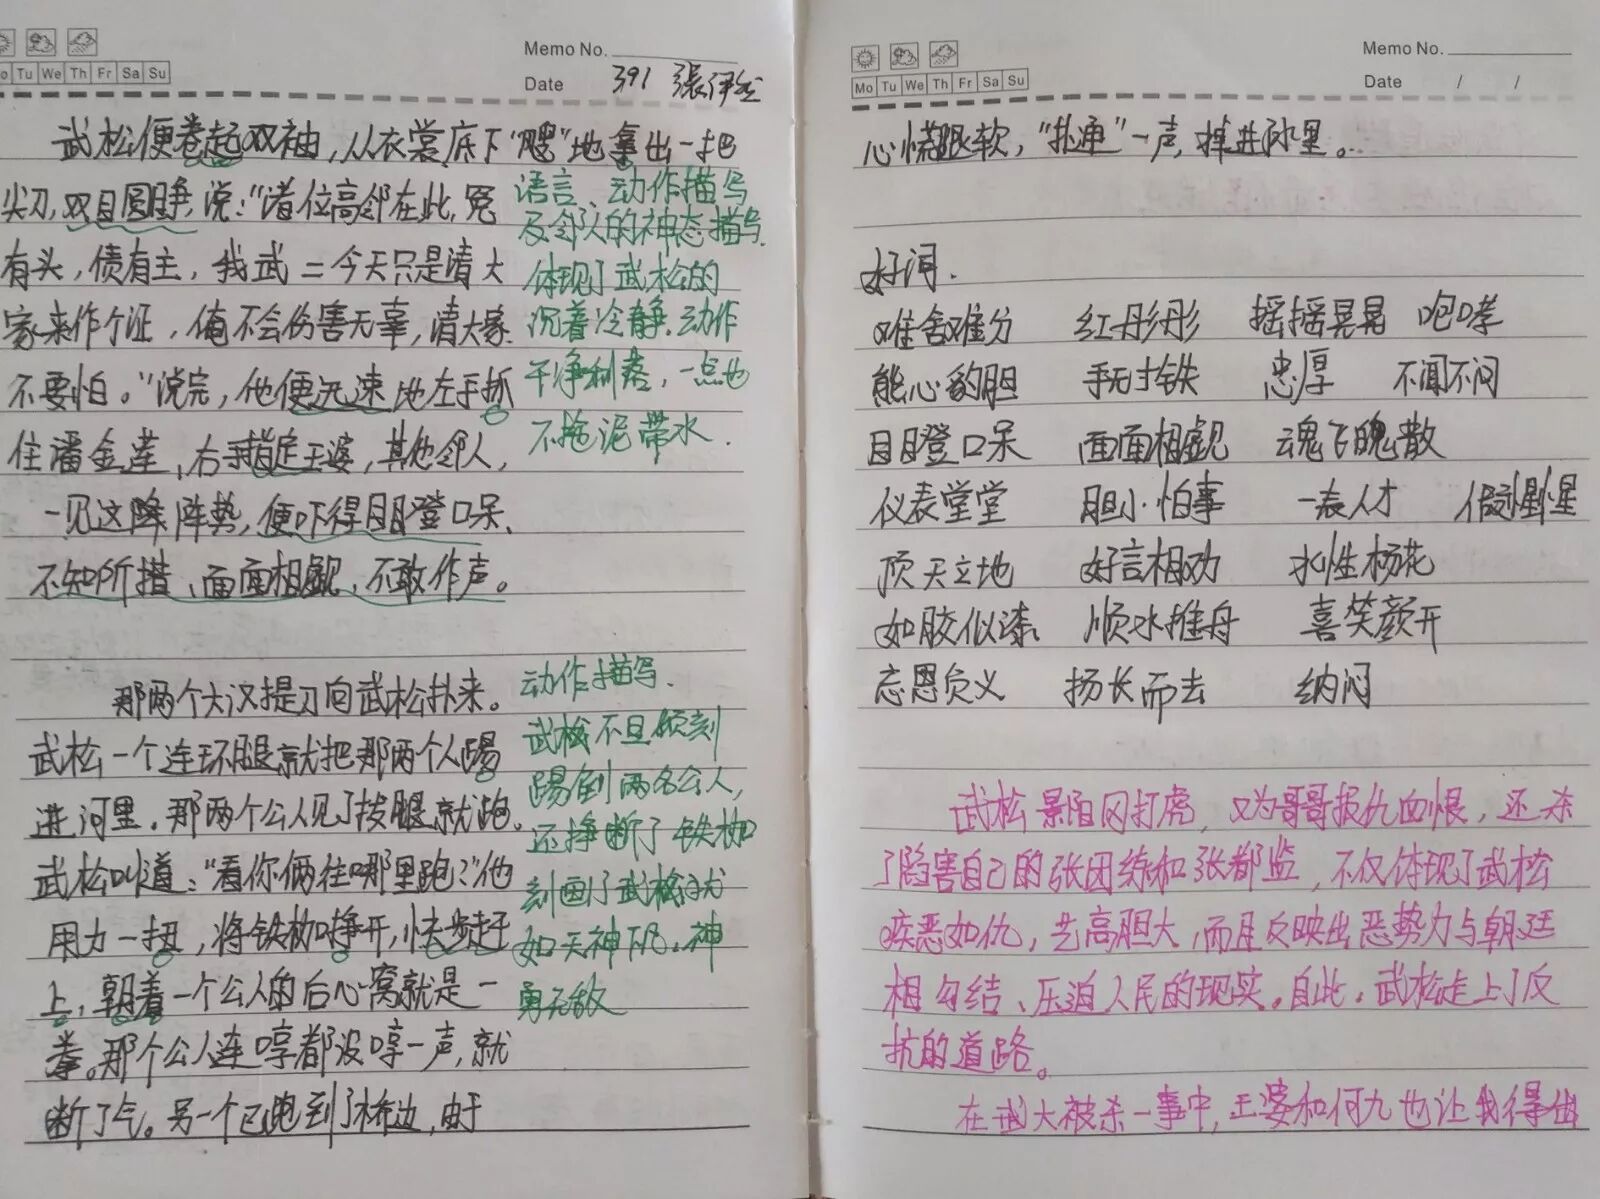 Memo No.
Mo Tu We Th Fr Sa Su
Date 391
武松便卷起双袖，从衣裳底下“飕”地拿出一把
尖刀，双目圆睁，说：“诸位高邻在此，冤
有头，债有主，我武二今天只是请大
家来作个证，俺不会伤害无辜，请大家
不要怕。”说完，他便迅速地左手抓
住潘金莲，右手指定王婆，其他邻人，
一见这阵势，便吓得目瞪口呆、
不知所措、面面相觑、不敢作声。
语言、动作描写
及邻人的神态描写
体现了武松的
沉着冷静，动作
干净利落，一点也
不拖泥带水．
那两个大汉提刀向武松扑来。
武松一个连环腿就把那两个人踢
进河里，那两个公人见了拔腿就跑。
武松叫道：“看你俩往哪里跑？”他
用力一扭，将铁枷挣开，快步赶
上，朝着一个公人的后心窝就是一
拳。那个公人连哼都没哼一声，就
断了气。另一个已跑到了桥边，由于
动作描写．
武松不旦顷刻
踢倒两名公人，
还挣断了铁枷
刻画了武松犹
如天神下凡，神
勇无敌
Memo No.
Mo Tu We Th Fr Sa Su
Date / /
心慌腿软，“扑通”一声，掉进河里。
好词．
难舍难分 红彤彤 摇摇晃晃 咆哮
熊心豹胆 手无寸铁 忠厚 不闻不问
目瞪口呆 面面相觑 魂飞魄散
仪表堂堂 胆小怕事 一表人才 假惺惺
顶天立地 好言相劝 水性杨花
如胶似漆 顺水推舟 喜笑颜开
忘恩负义 扬长而去 纳闷
武松景阳冈打虎，又为哥哥报仇血恨，还杀
了陷害自己的张团练和张都监，不仅体现了武松
疾恶如仇，艺高胆大，而且反映出恶势力与朝廷
相勾结、压迫人民的现实。自此，武松走上了反
抗的道路。
在武大被杀一事中，王婆和何九也让我得出